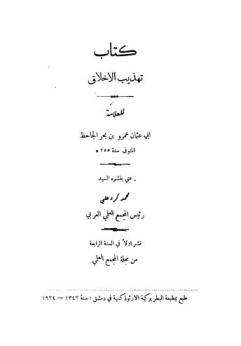 كتاب
تهذيب الاخلاق
للعلامة
ابي عثمان عمرو بن بحر الجاحظ
المتوفى سنة ٢٥٥ ه
عني بنشره السيد
محمد كرد علي
رئيس المجمع العلمي العربي
نشر اولاً في السنة الرابعة
من مجلة المجمع العلمي
طبع بمطبعة البطريركية الارثوذكسية في دمشق : سنة ١٣٤٢ - ١٩٢٤